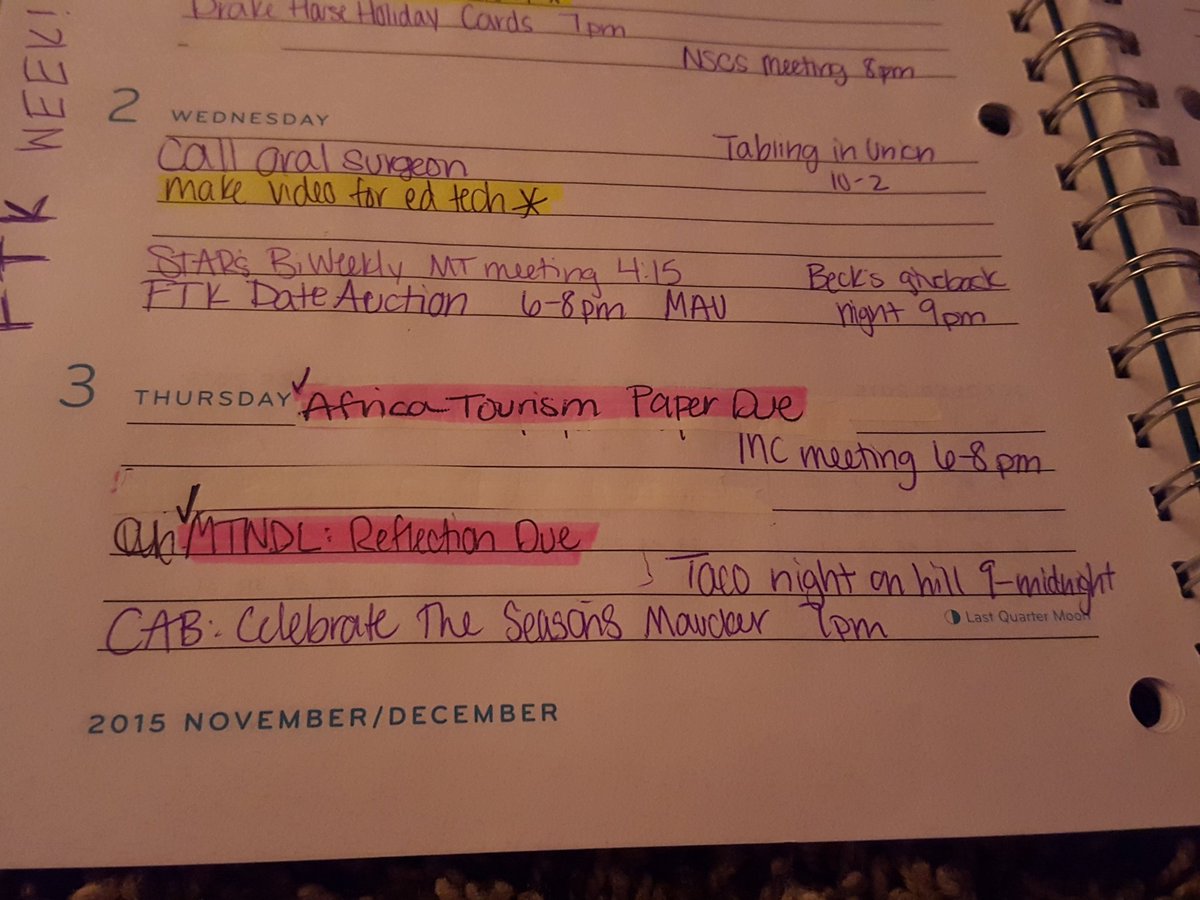 Drake House Holiday Cards 7pm
NSCS meeting 8pm
FTK WEEK!
2 WEDNESDAY
Call oral surgeon
Tabling in Union
10-2
make video for ed tech *
STARs BiWeekly MT meeting 4:15
Beck's giveback
FTK Date Auction 6-8pm MAU
night 9pm
3 THURSDAY ✓ Africa Tourism Paper Due
INC meeting 6-8pm
✓ MTNDL: Reflection Due
Taco night on hill 9-midnight
CAB: Celebrate The Seasons Maucker 7pm
Last Quarter Moon
2015 NOVEMBER/DECEMBER